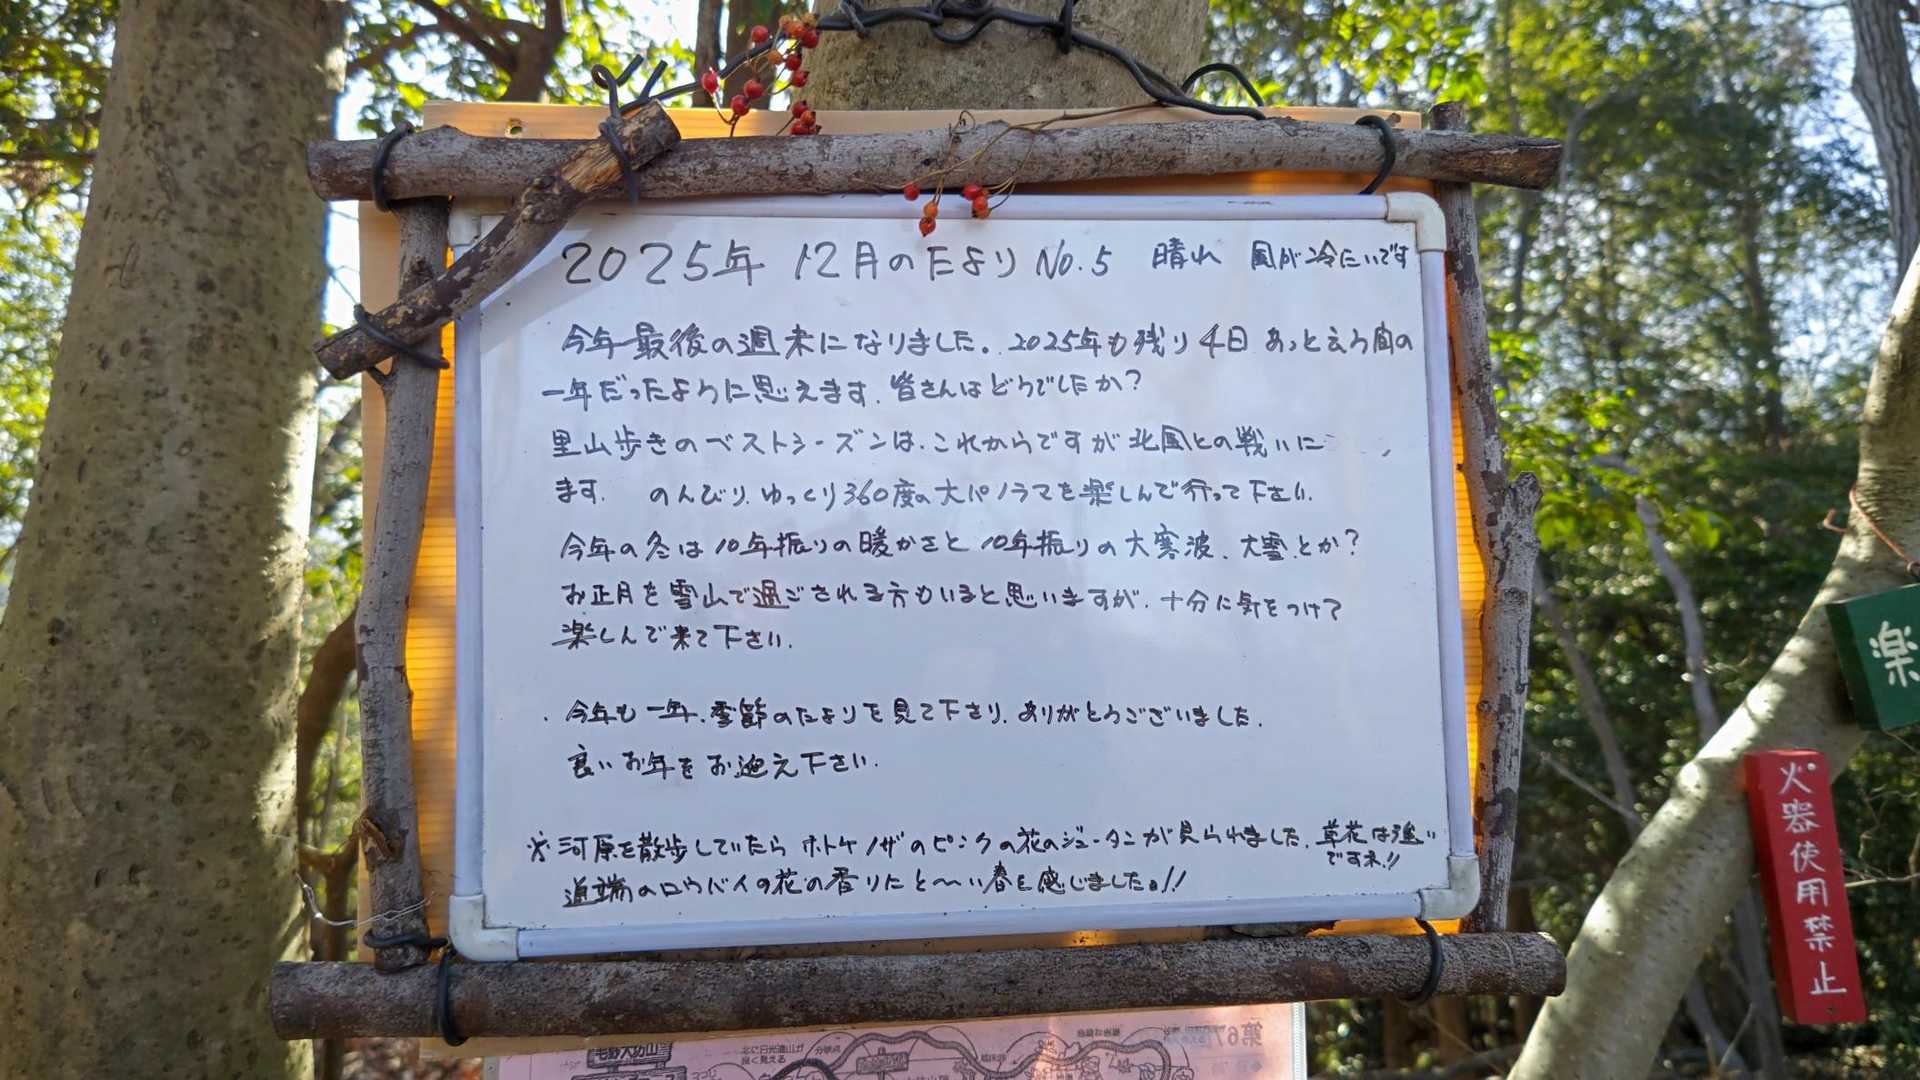 2025年 12月のたより No.5 晴れ 風が冷たいです
今年最後の週末になりました。2025年も残り4日 あっと云う間の
一年だったように思えます. 皆さんはどうでしたか?
里山歩きのベストシーズンは、これからですが北風との戦いに
ます. のんびり、ゆっくり360度の大パノラマを楽しんで行って下さい.
今年の冬は10年振りの暖かさと10年振りの大寒波、大雪とか?
お正月を雪山で過ごされる方もいると思いますが、十分に気をつけて
楽しんで来て下さい.
・今年も一年、季節のたよりを見て下さり、ありがとうございました.
良いお年をお迎え下さい.
※河原を散歩していたらホトケノザのピンクの花のジュータンが見られました. 草花は強い
ですネ!!
道端のロウバイの花の香りにと〜い春を感じました。!!
楽
火器使用禁止
北に日光連山が
良く見える
分岐点
第67